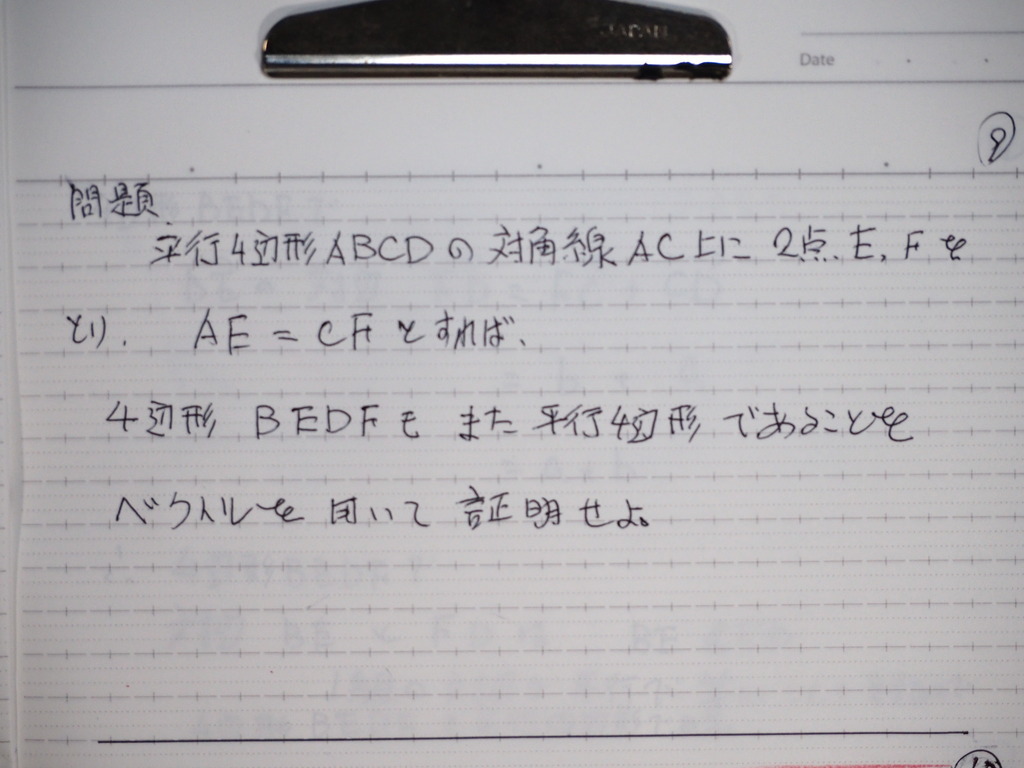 JAPAN
Date
8
問題
平行4辺形ABCDの対角線AC上に2点、E, Fを
とり、AE = CFとすれば、
4辺形 BEDFも また 平行4辺形 であることを
ベクトルを 用いて 証明せよ。